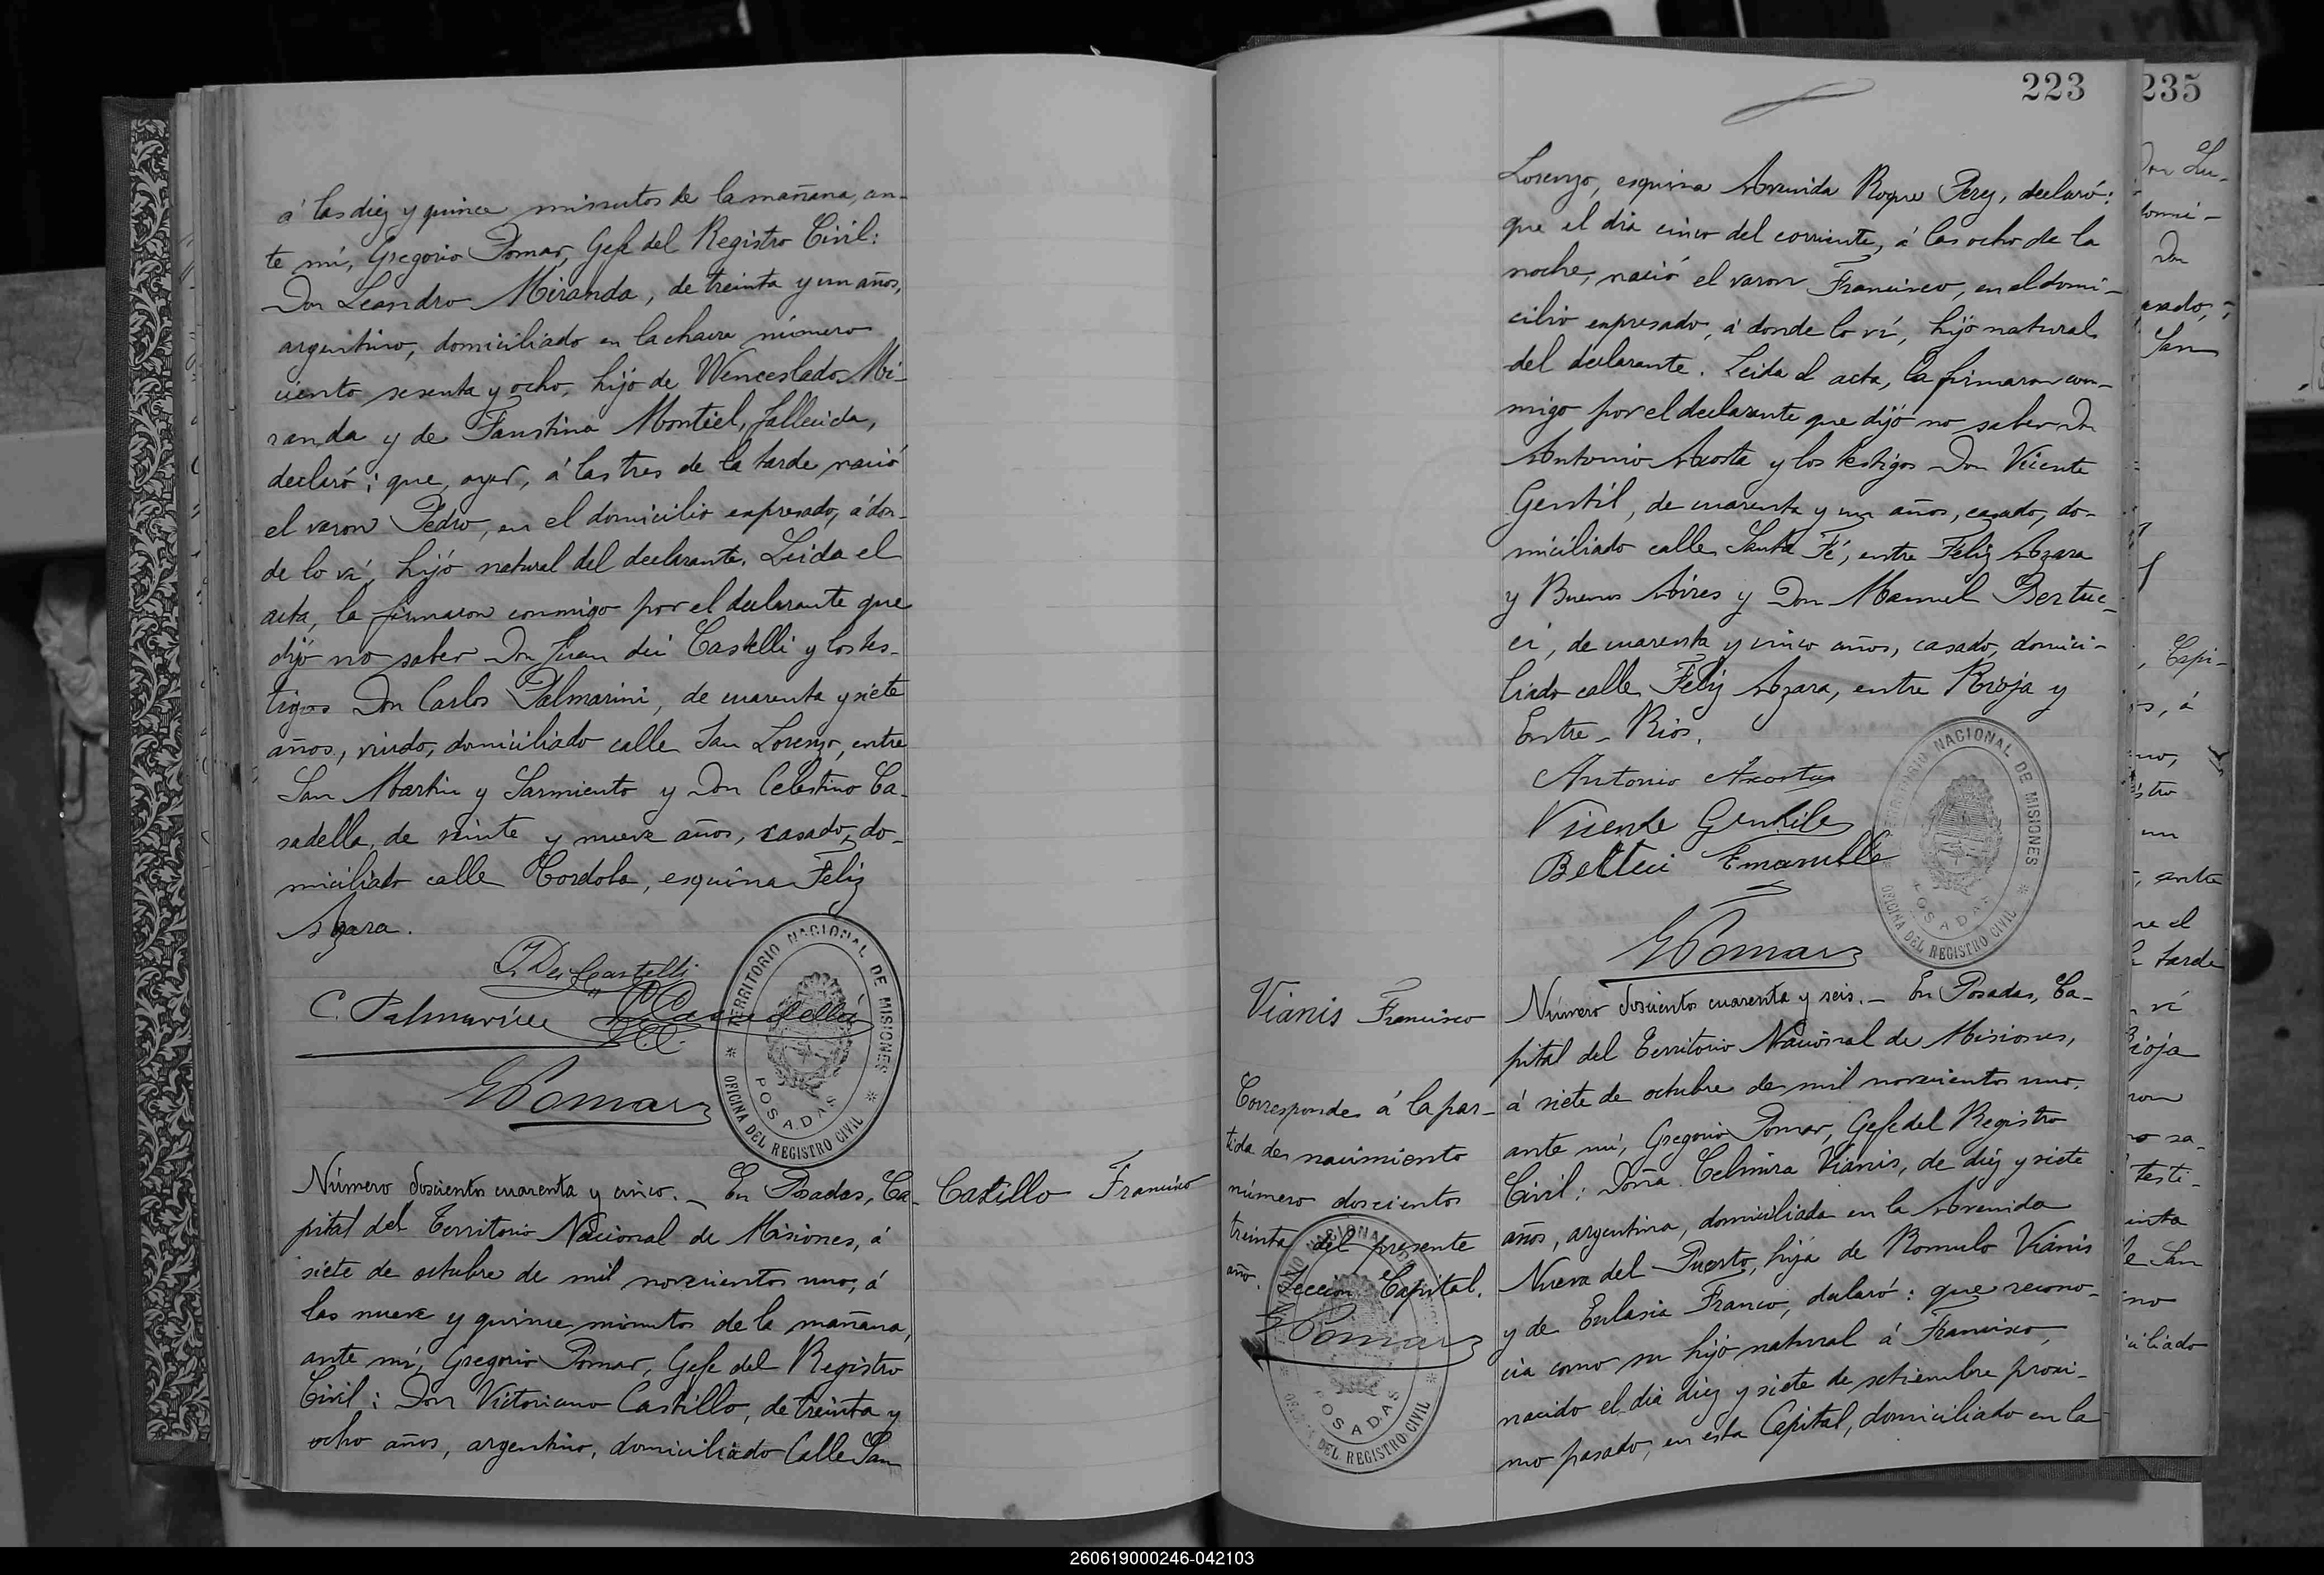 á las diez y quince minutos de la mañana, an-
te mí, Gregorio Pomar, Gefe del Registro Civil:
Don Leandro Miranda, de treinta y un años,
argentino, domiciliado en la chacra número
ciento sesenta y ocho, hijo de Wenceslado Mi-
randa y de Faustina Montiel, fallecida,
declaró: que, ayer, á las tres de la tarde nació
el varon Pedro, en el domicilio expresado, á don-
de lo ví, hijo natural del declarante. Leida el
acta, la firmaron conmigo por el declarante que
dijo no saber Don Juan dei Castelli y los tes-
tigos Don Carlos Palmarini, de cuarenta y siete
años, viudo, domiciliado calle San Lorenzo, entre
San Martin y Sarmiento y Don Celestino Ca-
sadella, de veinte y nueve años, casado, do-
miciliado calle Cordoba, esquina Feliz
Azara.
J. Dei Castelli
C. Palmarini
GPomar
TERRITORIO NACIONAL DE MISIONES
POSADAS
OFICINA DEL REGISTRO CIVIL
Número doscientos cuarenta y cinco. _ En Posadas, Ca-
Castillo Francisco
pital del Territorio Nacional de Misiones, á
siete de octubre de mil novecientos uno, á
las nueve y quince minutos de la mañana,
ante mí, Gregorio Pomar, Gefe del Registro
Civil: Don Victoriano Castillo, de treinta y
ocho años, argentino, domiciliado Calle San
223
Lorenzo, esquina Avenida Roque Perez, declaró:
que el dia cinco del corriente, á las ocho de la
noche, nació el varon Francisco, en el domi-
cilio expresado, á donde lo ví, hijo natural
del declarante. Leida el acta, la firmaron con-
migo por el declarante que dijo no saber Don
Antonio Acosta y los testigos Don Vicente
Gentil, de cuarenta y un años, casado, do-
miciliado calle Santa Fé, entre Feliz Azara
y Buenos Aires y Don Manuel Bertuc-
ci, de cuarenta y cinco años, casado, domici-
liado calle Feliz Azara, entre Rioja y
Entre-Rios.
Antonio Acosta
Vicente Gentile
Bettuci Emanuelle
GPomar
TERRITORIO NACIONAL DE MISIONES
POSADAS
OFICINA DEL REGISTRO CIVIL
Vianis Francisco
Corresponde á la par-
tida de nacimiento
número doscientos
treinta del presente
año. Seccion Capital.
GPomar
NACIONAL
POSADAS
DEL REGISTRO CIVIL
Número doscientos cuarenta y seis. _ En Posadas, Ca-
pital del Territorio Nacional de Misiones,
á siete de octubre de mil novecientos uno,
ante mí, Gregorio Pomar, Gefe del Registro
Civil: Doña Celmira Vianis, de diez y siete
años, argentina, domiciliada en la Avenida
Nueva del Puerto, hija de Romulo Vianis
y de Eulasia Franco, declaró: que recono-
cia como su hijo natural á Francisco,
nacido el dia diez y siete de setiembre proxi-
mo pasado, en esta Capital, domiciliado en la
235
Don
San
Capi-
entre
tarde
ví
Rioja
testi-
San
260619000246-042103